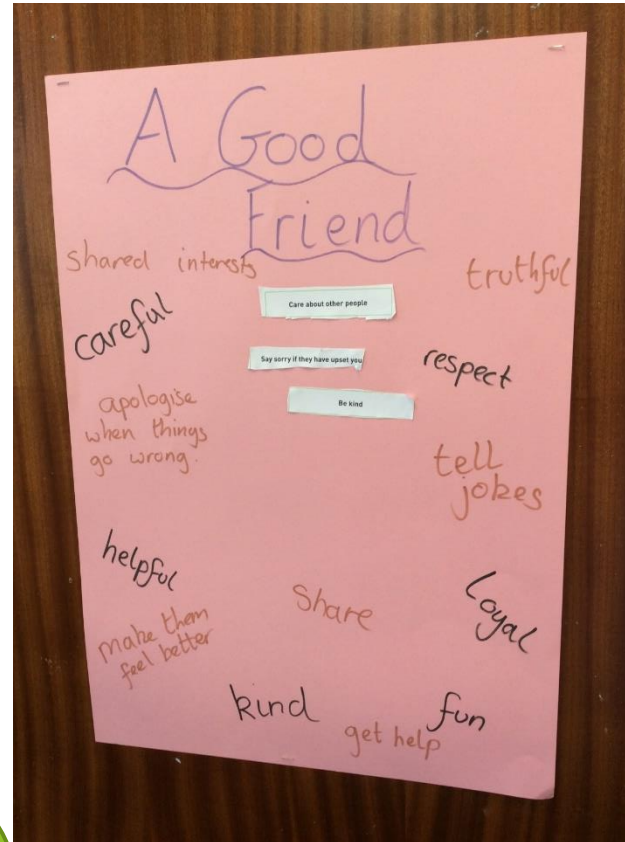 A Good
Friend
shared interests
truthful
Care about other people
careful
Say sorry if they have upset you
respect
Be kind
apologise
when things
go wrong.
tell
jokes
helpful
Share
Loyal
make them
feel better
kind
fun
get help